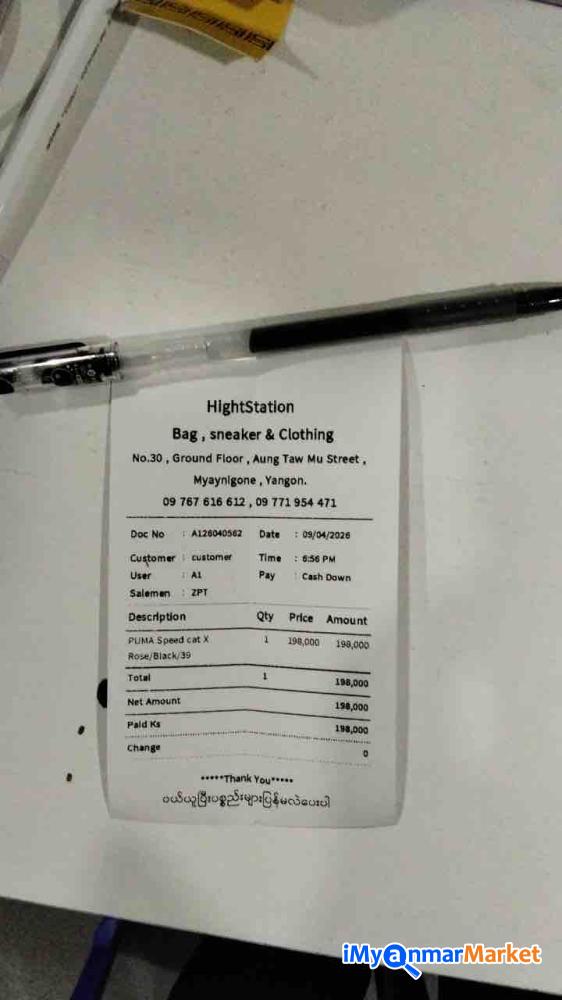 HightStation
Bag , sneaker & Clothing
No.30 , Ground Floor , Aung Taw Mu Street ,
Myaynigone , Yangon.
09 767 616 612 , 09 771 954 471
Doc No : A126040562 Date : 09/04/2026
Customer : customer Time : 6:56 PM
User : A1 Pay : Cash Down
Salemen : ZPT
Description Qty Price Amount
PUMA Speed cat X 1 198,000 198,000
Rose/Black/39
Total 1 198,000
Net Amount 198,000
Paid Ks 198,000
Change 0
*****Thank You*****
ဝယ်ယူပြီးပစ္စည်းများပြန်မလဲပေးပါ
iMyanmarMarket